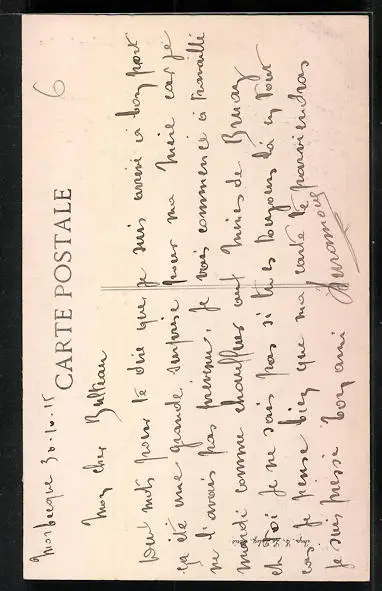 6
Morbecque 30-10-15
CARTE POSTALE
Mon cher Bulteau
Deux mots pour te dire que je suis arrivé à bon port
ça été une grande surprise pour ma Mère car je
ne l'avais pas prévenu. Je vais commencé à travaillé
mardi comme chauffeur aux Mines de Bruay
et toi je ne sais pas si tu es toujours là en tout
cas je pense bien que ma carte te parviendras
je suis presse bon ami